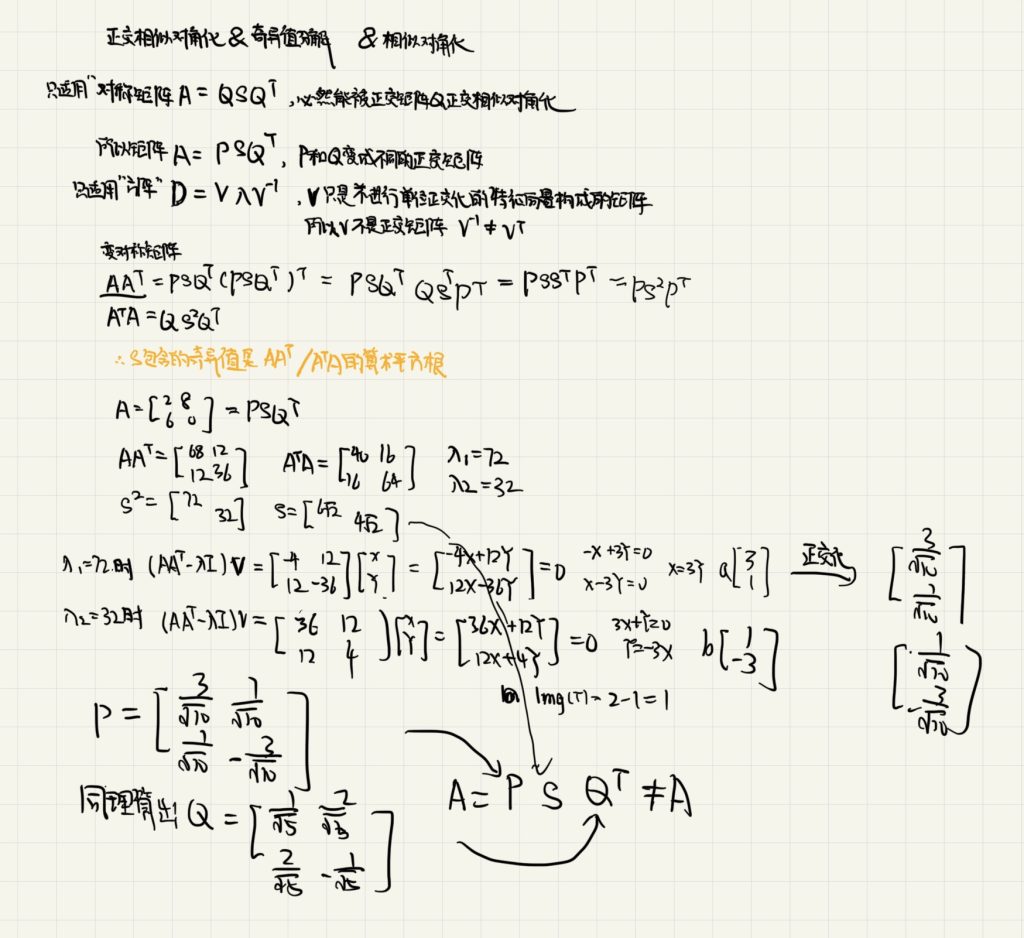 正交相似对角化 & 奇异值分解 & 相似对角化
只适用"对称矩阵 A = QSQᵀ, 必然能被正交矩阵Q正交相似对角化
所以矩阵 A = PSQᵀ, P和Q变成不同的正交矩阵
只适用"方阵" D = VλV⁻¹, V只是未进行单位正交化的特征向量构成的矩阵
所以V不是正交矩阵 V⁻¹ ≠ Vᵀ
变对称矩阵
AAᵀ = PSQᵀ(PSQᵀ)ᵀ = PSQᵀ QSᵀPᵀ = PSSᵀPᵀ = PS²Pᵀ
AᵀA = QS²Qᵀ
∴ S包含的奇异值是 AAᵀ/AᵀA的算术平方根
A = [2 8; 6 0] = PSQᵀ
AAᵀ = [68 12; 12 36] AᵀA = [40 16; 16 64] λ1=72 λ2=32
S² = [72 32] S = [6√2 4√2]
λ1=72时 (AAᵀ-λI)V = [-4 12; 12 -36][x; Y] = [-4x+12Y; 12x-36Y] = 0 -x+3Y=0 x-3Y=0 x=3Y a[3; 1] 正交化 [3/√10; 1/√10]
λ2=32时 (AAᵀ-λI)V = [36 12; 12 4][x; Y] = [36x+12Y; 12x+4Y] = 0 3x+Y=0 Y=-3x b[1; -3] [1/√10; -3/√10]
Img(T) = 2-1=1
P = [3/√10 1/√10; 1/√10 -3/√10]
同理算出 Q = [1/√5 2/√5; 2/√5 -1/√5]
A = P S Qᵀ ≠ A